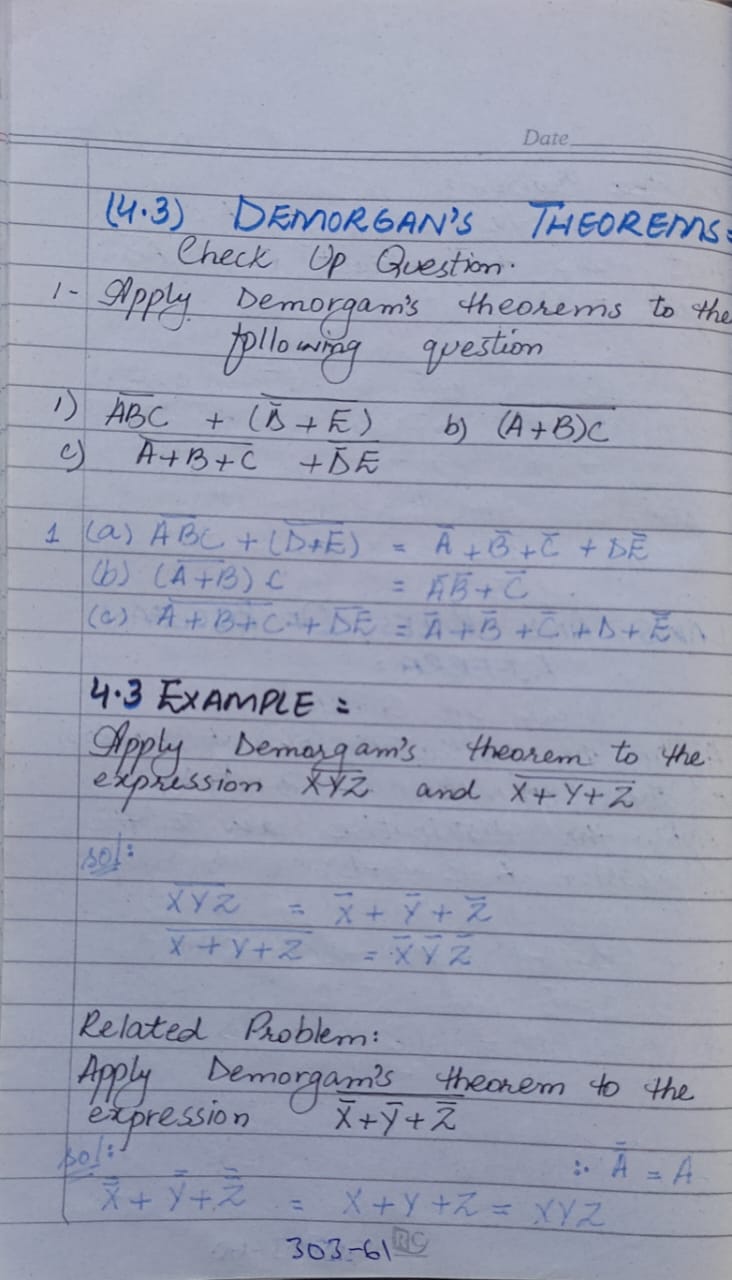 Date
(4.3) DEMORGAN'S THEOREMS=
Check Up Question.
1- Apply Demorgam's theorems to the
following question
1) A̅B̅C̅ + (D̅̅+̅E̅) b) (̅A̅+̅B̅)̅C̅
c) A̅+̅B̅+̅C̅ + D̅E
1 (a) A̅B̅C̅ + (̅D̅+̅E̅)̅ = A̅ + B̅ + C̅ + DE̅
(b) (A̅+̅B̅) C = A̅B̅ + C̅
(c) A̅+̅B̅+̅C̅ + D̅E̅ = A̅ + B̅ + C̅ + D + E̅
4.3 EXAMPLE =
Apply Demorgam's theorem to the
expression X̅Y̅Z̅ and X̅+̅Y̅+̅Z̅
sol:
X̅Y̅Z̅ = X̅ + Y̅ + Z̅
X̅+̅Y̅+̅Z̅ = X̅ Y̅ Z̅
Related Problem:
Apply Demorgam's theorem to the
expression X̿+Y̿+Z̿
sol: ∵ A̿ = A
X̿ + Y̿ + Z̿ = X + Y + Z = XYZ
303-61 RC